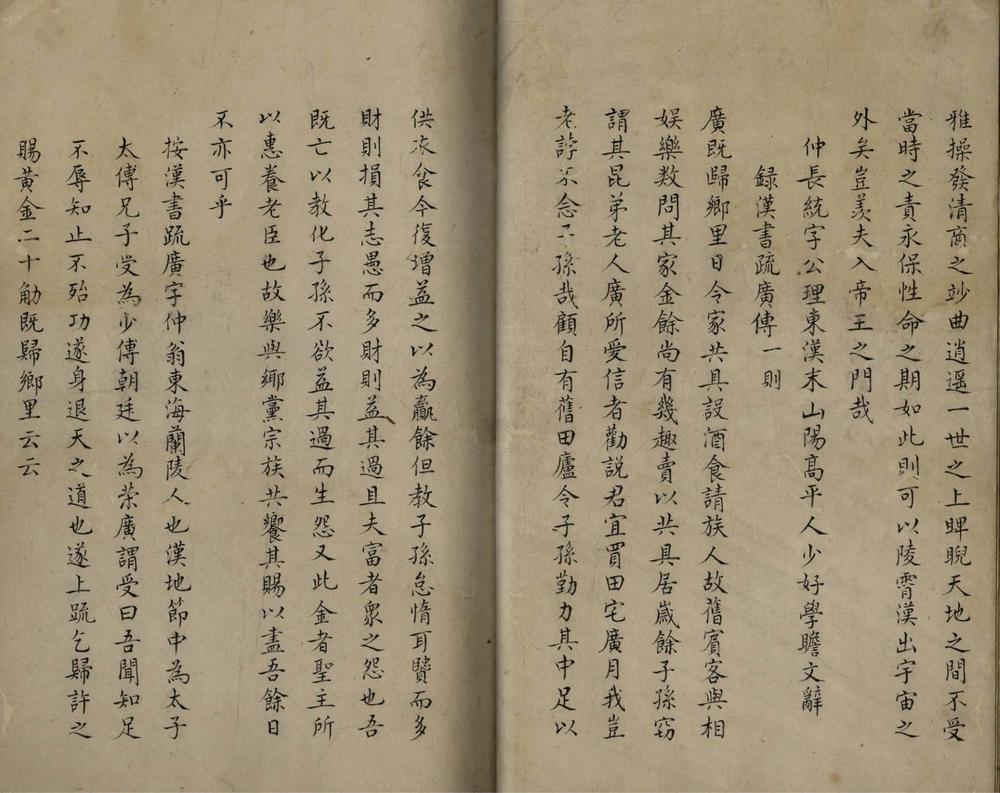 雅操發清商之玅曲逍遥一世之上睥睨天地之間不受
當時之責永保性命之期如此則可以陵霄漢出宇宙之
外矣豈羡夫入帝王之門哉
仲長統字公理東漢末山陽高平人少好學贍文辭
録漢書疏廣傳一則
廣既歸鄉里日令家共具設酒食請族人故舊賓客與相
娱樂数問其家金餘尚有幾趣賣以共具居嵗餘子孫窃
謂其昆弟老人廣所愛信者勸説君宜買田宅廣月我豈
老誖不念子孫哉顧自有舊田廬令子孫勤力其中足以
供衣食今復增益之以為贏餘但教子孫怠惰耳賢而多
財則損其志愚而多財則益其過且夫富者衆之怨也吾
既亡以教化子孫不欲益其過而生怨又此金者聖主所
以惠養老臣也故樂與鄉黨宗族共饗其賜以盡吾餘日
不亦可乎
按漢書疏廣字仲翁東海蘭陵人也漢地節中為太子
太傅兄子受為少傅朝廷以為荣廣謂受曰吾聞知足
不辱知止不殆功遂身退天之道也遂上疏乞歸許之
賜黃金二十觔既歸鄉里云云